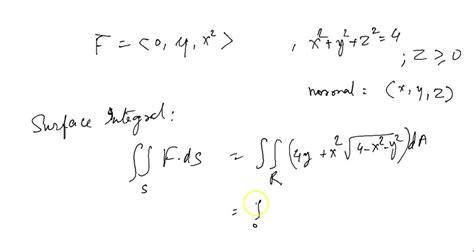 F = <0, y, x²> , x²+y²+z²=4
; z ≥ 0
normal : (x, y, z)
Surface Integral :
∬_S F.ds = ∬_R (4y + x²√(4-x²-y²)) dA
= ∫_0